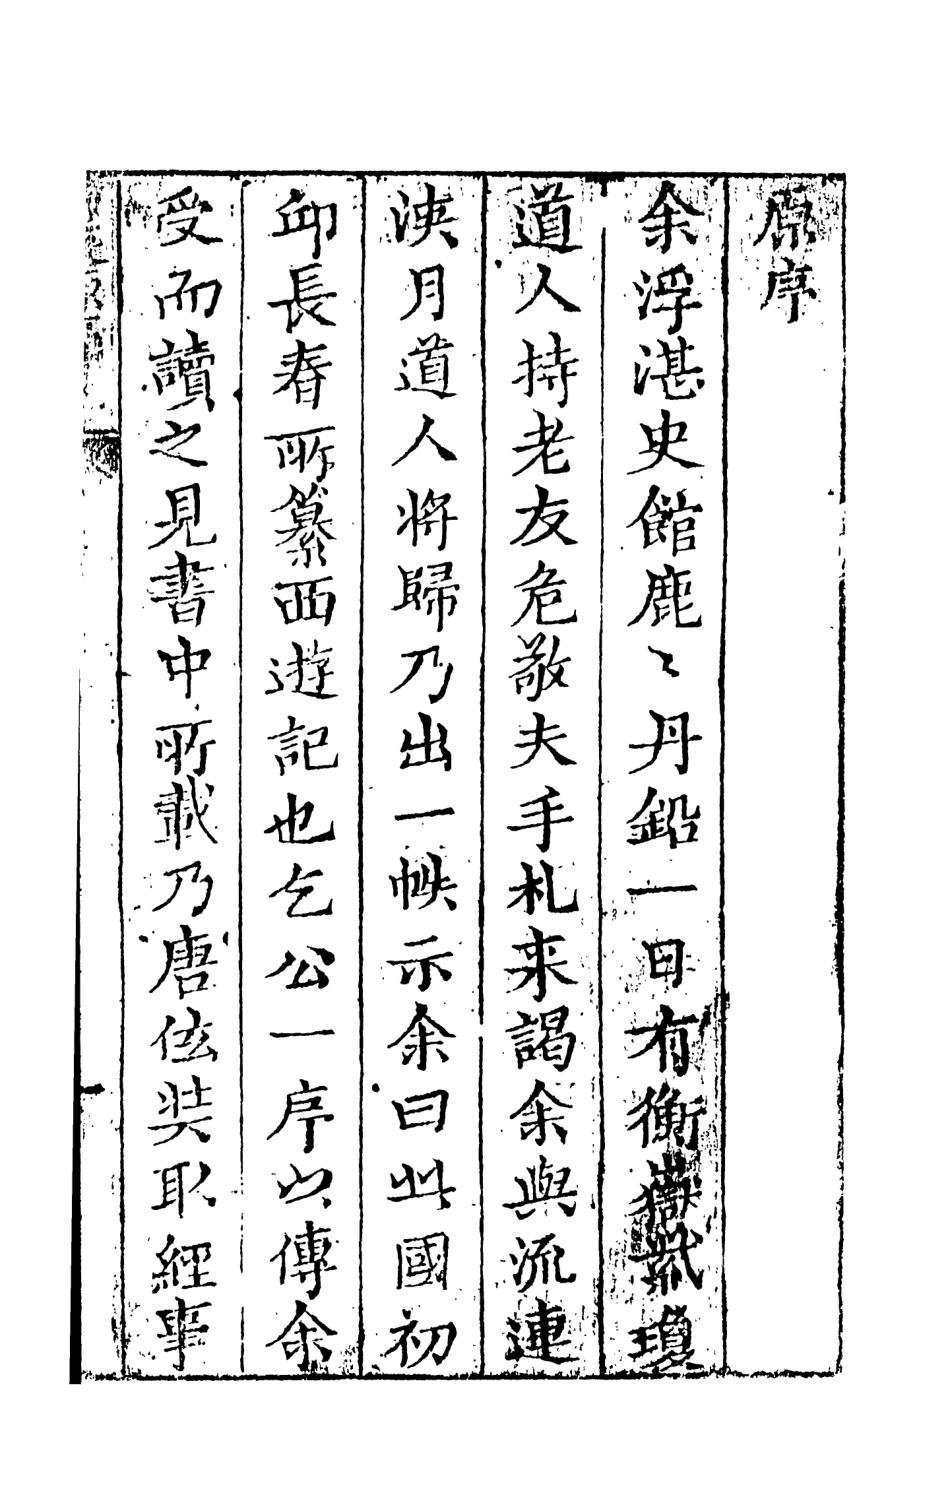 原序
余浮湛史館鹿〻丹鉛一日有衡嶽紫瓊
道人持老友危敬夫手札来謁余與流連
浹月道人将歸乃出一帙示余曰此國初
邱長春所纂西遊記也乞公一序以傳余
受而讀之見書中所載乃唐伭奘取經事